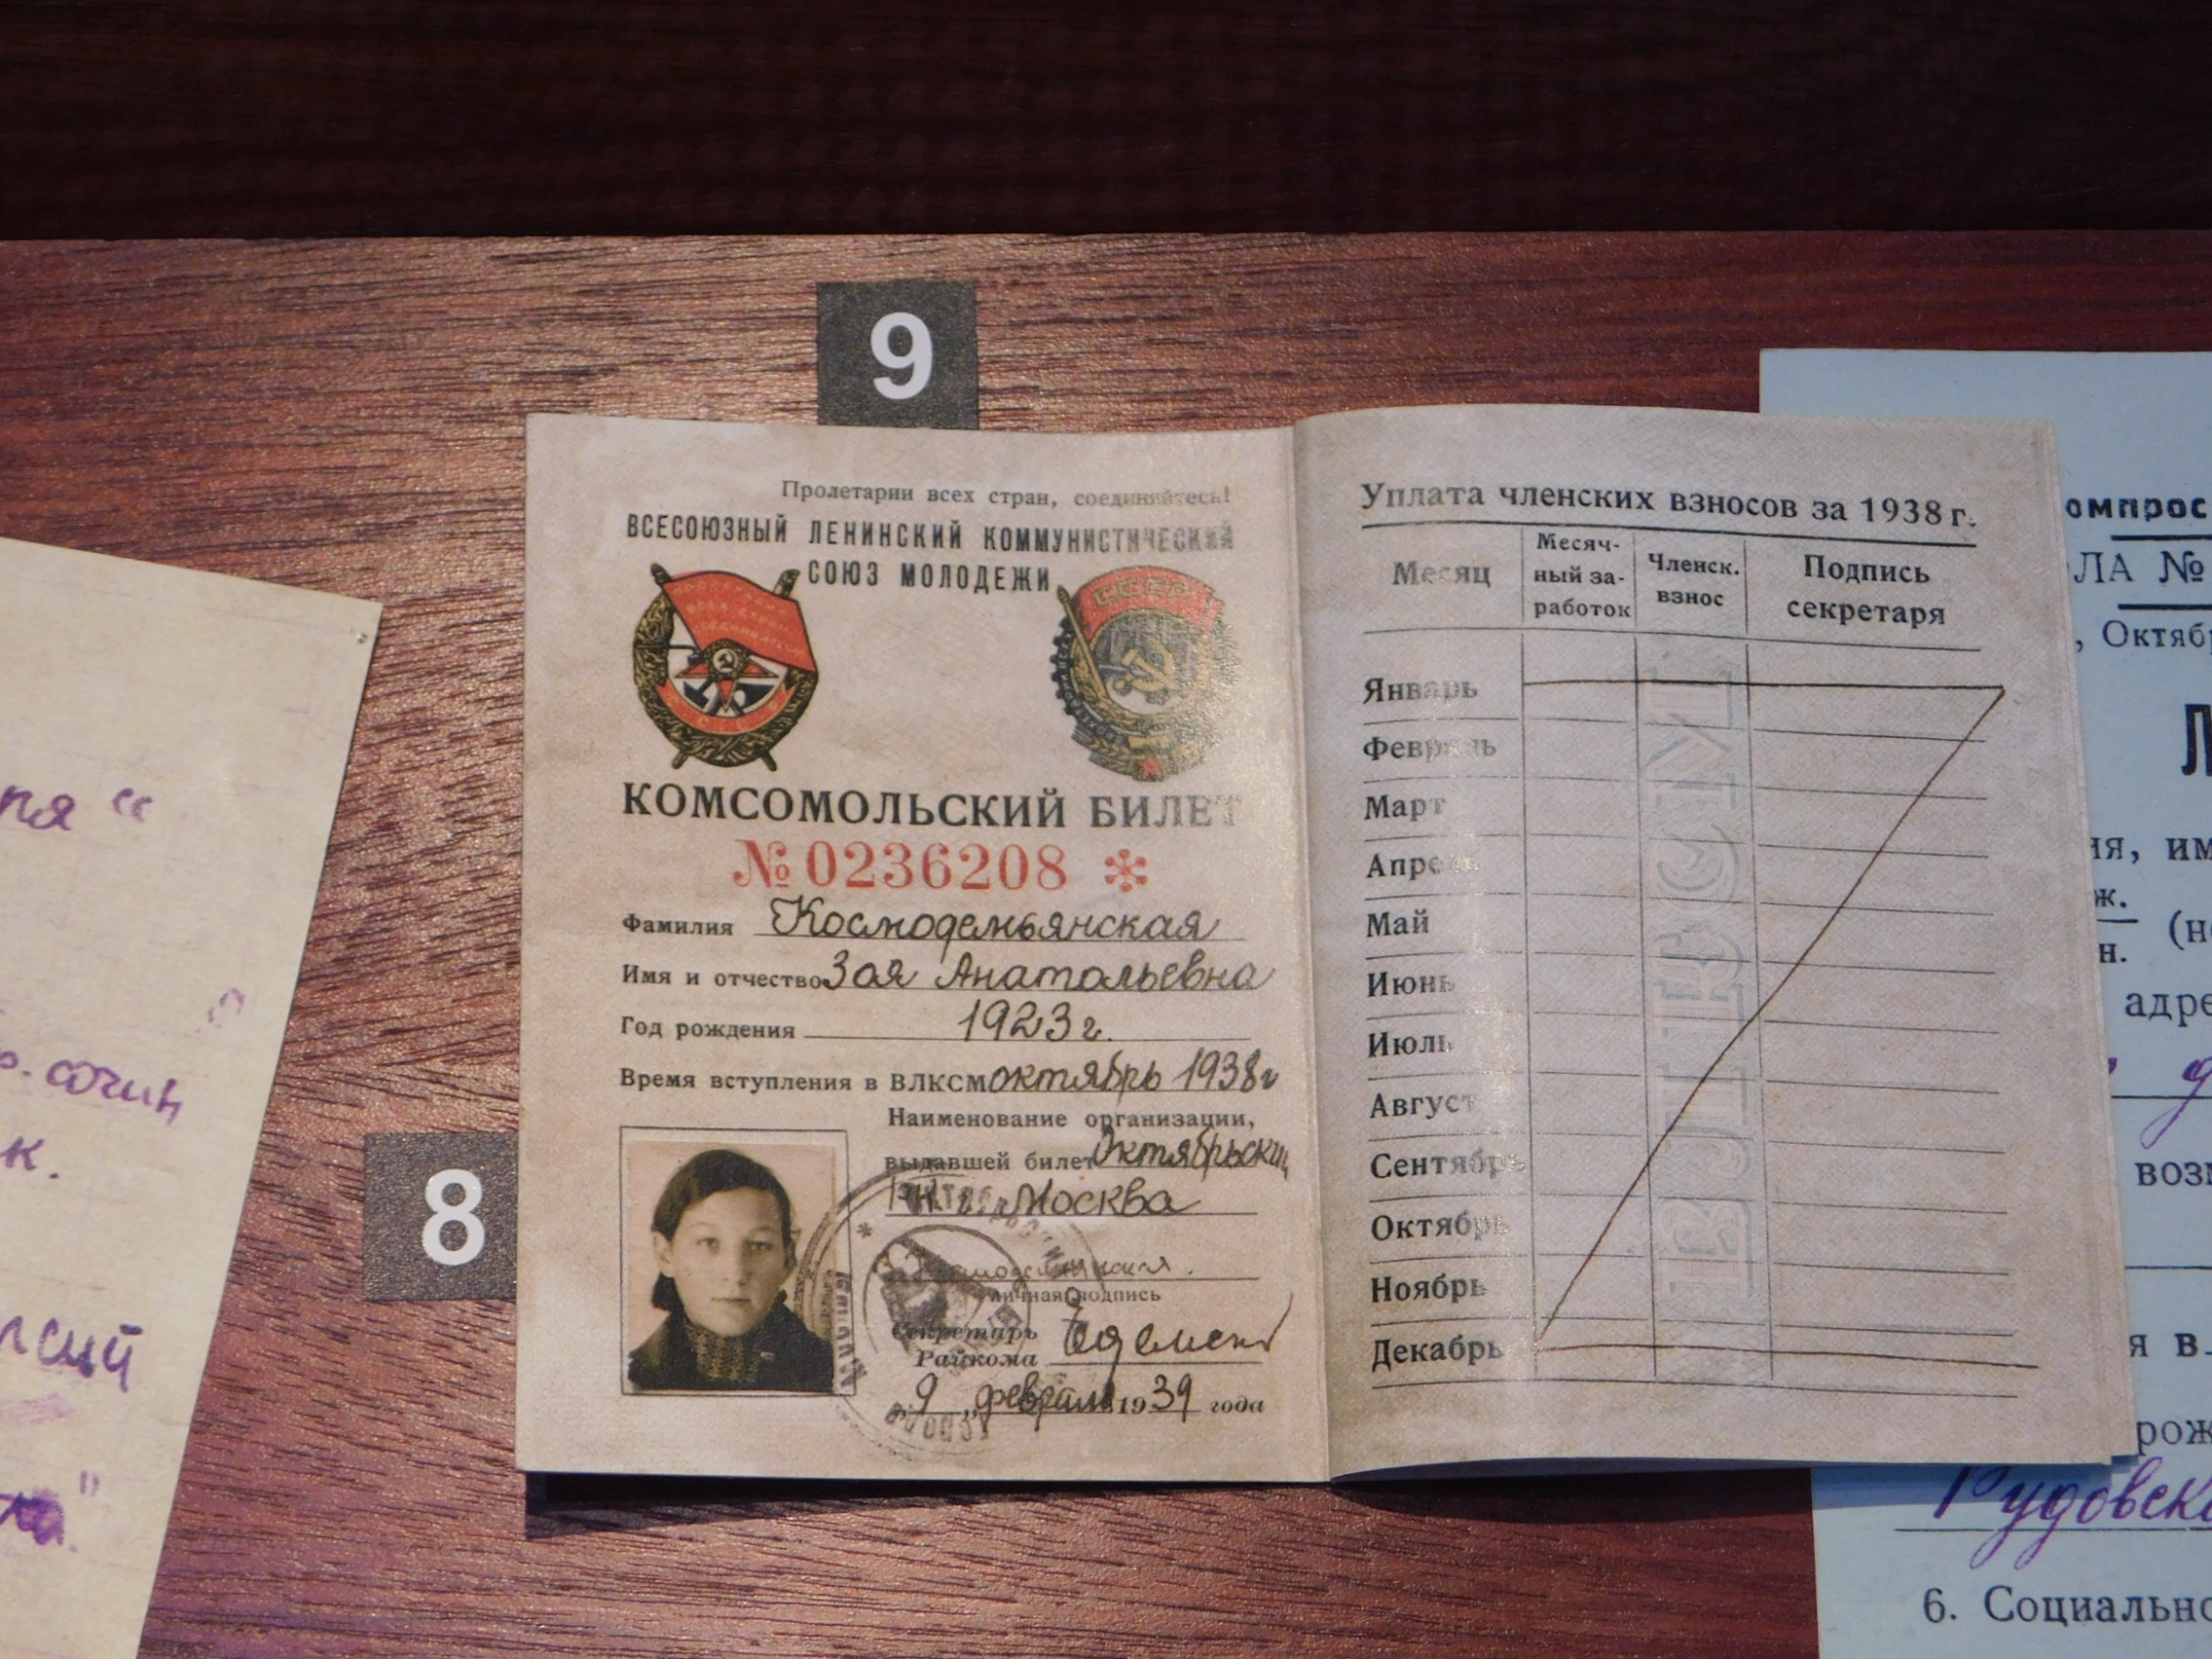 9
8
Пролетарии всех стран, соединяйтесь!
ВСЕСОЮЗНЫЙ ЛЕНИНСКИЙ КОММУНИСТИЧЕСКИЙ
СОЮЗ МОЛОДЕЖИ
СССР
КОМСОМОЛЬСКИЙ БИЛЕТ
№ 0236208 *
Фамилия Космодемьянская
Имя и отчество Зоя Анатольевна
Год рождения 1923 г.
Время вступления в ВЛКСМ октябрь 1938 г
Наименование организации,
выдавшей билет Октябрьский
РК г. Москва
Космодемьянская.
личная подпись
Секретарь
Райкома
„9 „ февраля 1939 года
Уплата членских взносов за 1938 г.
Месяц
Месяч-
ный за-
работок
Членск.
взнос
Подпись
секретаря
Январь
Февраль
Март
Апрель
Май
Июнь
Июль
Август
Сентябрь
Октябрь
Ноябрь
Декабрь
ВЛКСМ
омпрос
ОЛА №
, Октябр
Л
ия, им
ж.
н.
(не
адре
возм
я в.
рож
6. Социально
ия “
р. сочин
к.